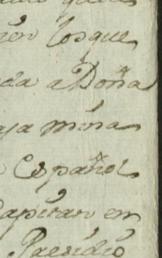 en los que
da a Doña
aja mina
Español
Capitan en
Presidio